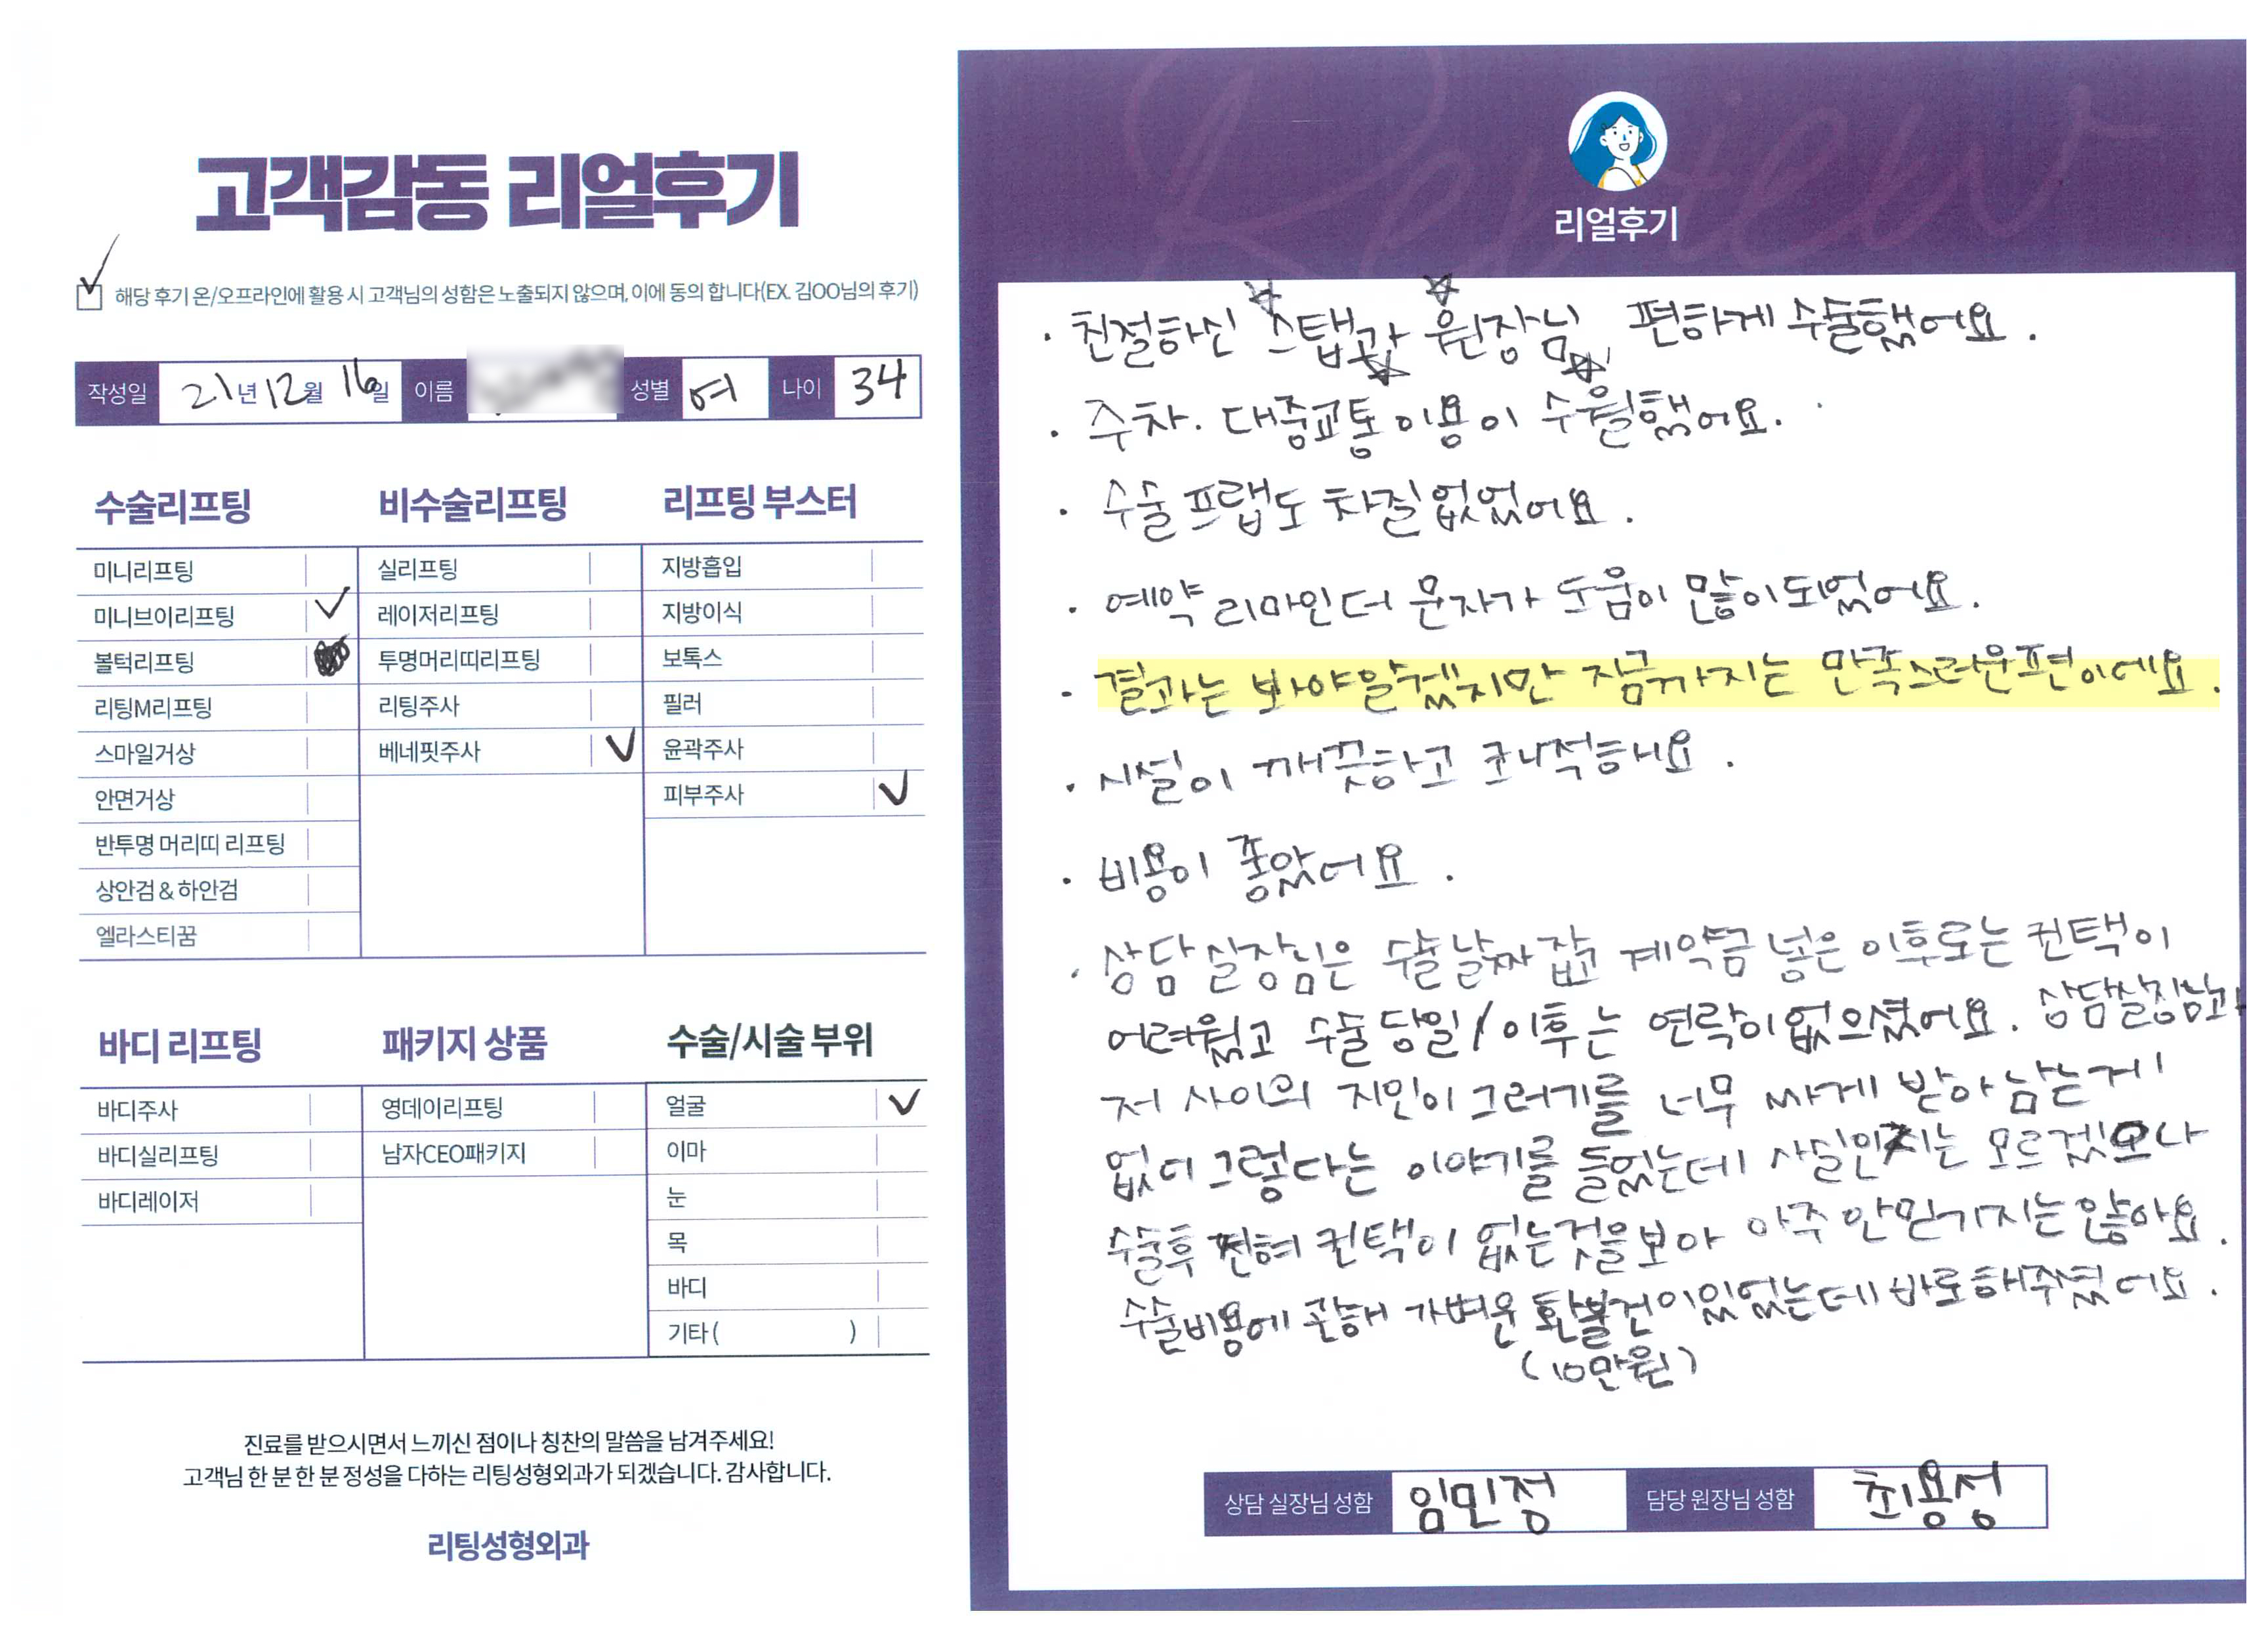 고객감동 리얼후기
해당 후기 온/오프라인에 활용 시 고객님의 성함은 노출되지 않으며, 이에 동의 합니다(EX. 김OO님의 후기)
작성일 21년 12월 16일 이름 성별 여 나이 34
수술리프팅
미니리프팅
미니브이리프팅
볼턱리프팅
리팅M리프팅
스마일거상
안면거상
반투명 머리띠 리프팅
상안검 & 하안검
엘라스티꿈
비수술리프팅
실리프팅
레이저리프팅
투명머리띠리프팅
리팅주사
베네핏주사
리프팅 부스터
지방흡입
지방이식
보톡스
필러
윤곽주사
피부주사
바디 리프팅
바디주사
바디실리프팅
바디레이저
패키지 상품
영데이리프팅
남자CEO패키지
수술/시술 부위
얼굴
이마
눈
목
바디
기타 ( )
진료를 받으시면서 느끼신 점이나 칭찬의 말씀을 남겨주세요!
고객님 한 분 한 분 정성을 다하는 리팅성형외과가 되겠습니다. 감사합니다.
리팅성형외과
Review
리얼후기
· 친절하신 스탭과 원장님 편하게 수술했어요.
· 주차. 대중교통 이용이 수월했어요.
· 수술 프랩도 차질없었어요.
· 예약 리마인더 문자가 도움이 많이되었어요.
· 결과는 봐야알겠지만 지금까지는 만족스러운편이에요.
· 시설이 깨끗하고 쾌적해요.
· 비용이 좋았어요.
· 상담실장님은 수술날짜잡고 계약금 넣은 이후로는 컨택이
어려웠고 수술당일/이후는 연락이없으셨어요. 상담실장님과
저 사이의 지인이 그러기를 너무 싸게 받아 남는게
없어 그렇다는 이야기를 들었는데 사실인지는 모르겠으나
수술후 전혀 컨택이 없는것을보아 아주 안믿기지는않아요.
수술비용에 관해 가벼운 환불건이있었는데 바로해주셨어요.
(10만원)
상담 실장님 성함 임민정 담당 원장님 성함 최용성